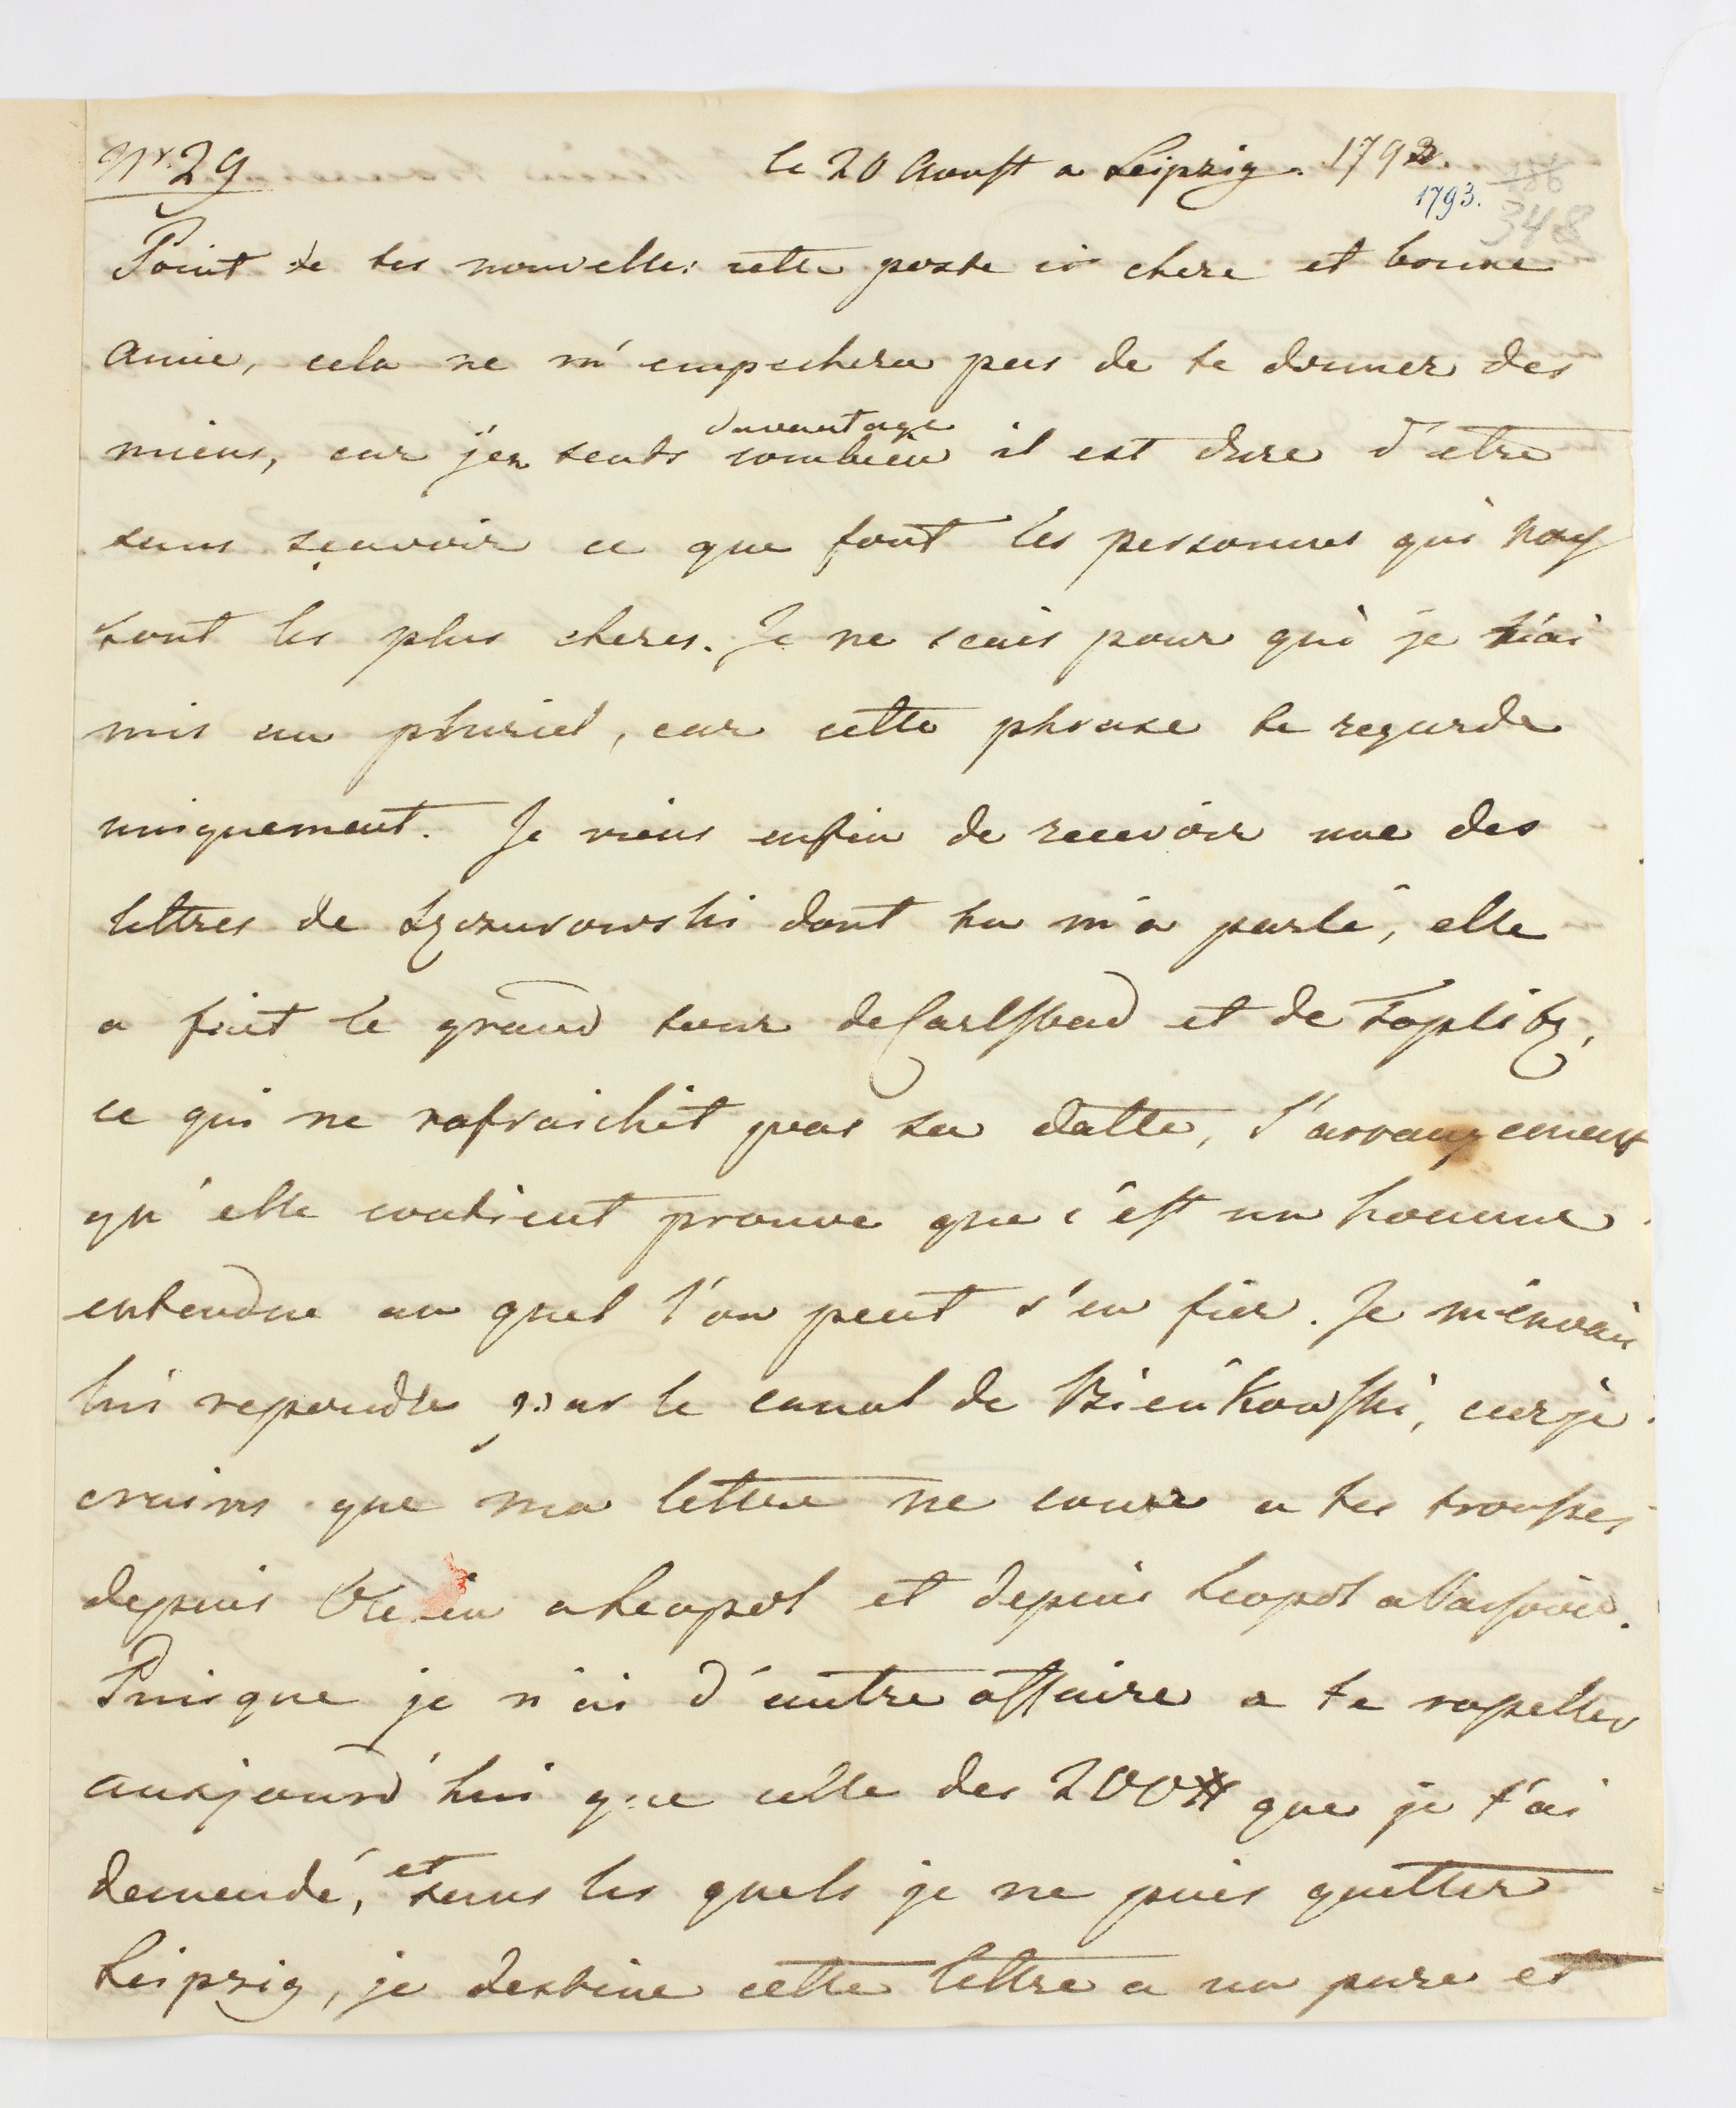 Nr. 29 le 20 Aoust a Leipzig. 1792.
1793.
348
Point de tes nouvelles cette poste ci chere et bonne
Amie, cela ne m'empechera pas de te donner des
miens, car j'en sents davantage combien il est dure d'etre
sans sçavoir ce que font les personnes qui nous
sont les plus cheres. Je ne scais pour qui je t'ai
mis au pluriel, car cette phrase te regarde
uniquement. Je viens enfin de recevoir une des
lettres de dont tu m'a parlé, elle
a fait le grand tour de Carlsbad et de Toplitz,
ce qui ne rafraichit pas sa datte, l'arrangement
qu'elle contient prouve que c'est un homme
entendue au quel l'on peut s'en fier. Je m'envais
lui repondre par le canal de Bieńkowski, car je
crains que ma lettre ne coure a tes trousses
depuis a Leopol et depuis Leopol a Varsovie.
Puisque je n'ai d'autre affaire a te rapeller
aurjourd'hui que celle des 200# que je t'ai
demendé, et sans les quels je ne puis quitter
Leipzig, je destine cette lettre a un pure et